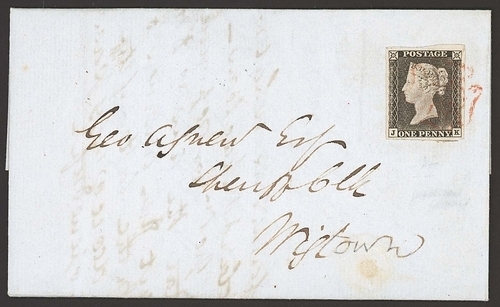 POSTAGE
J ONE PENNY K
Geo Agnew Esq
Sheriff Clk
Wigtown